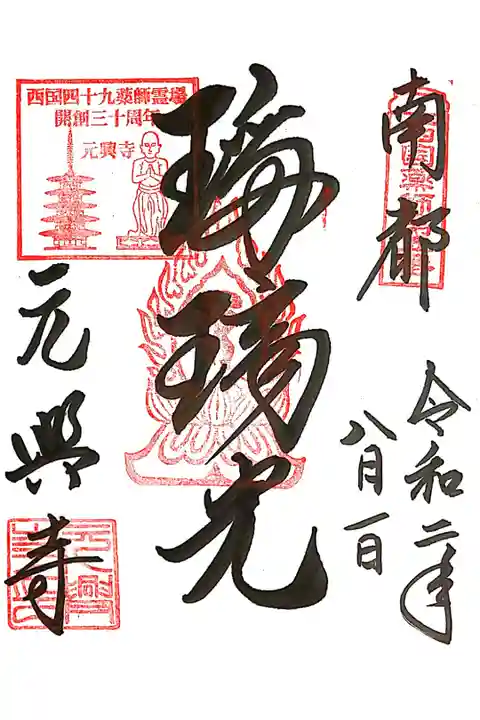 南都
令和二年
八月一日
瑠璃光
西国四十九薬師霊場
開創三十周年
元興寺
元興寺